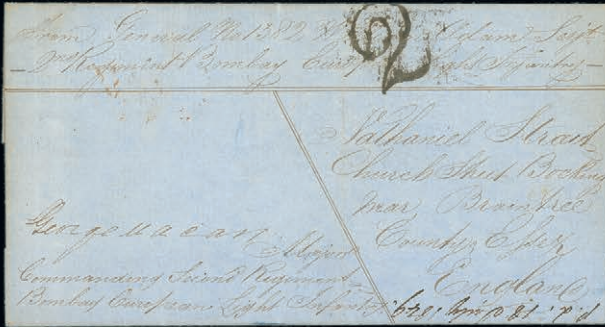 From General No 1382
2nd Regiment Bombay European Light Infantry
Nathaniel
Church Street Bocking
near Braintree
County Essex
England
George Macan
Major
Commanding Second Regiment
Bombay European Light Infantry
2